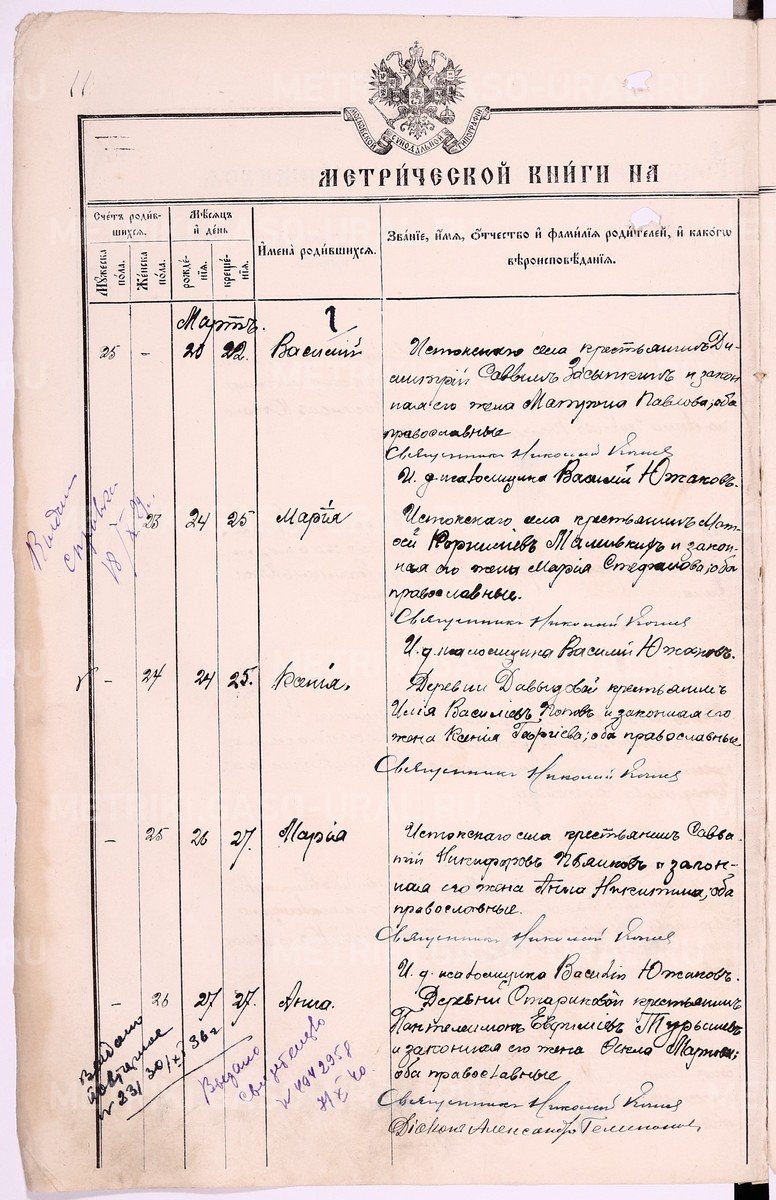 11
МОСКОВСКОЙ СѴНОДАЛЬНОЙ ТИПОГРАФІИ
МЕТРИ́ЧЕСКОЙ КНИ́ГИ НА
Счетъ роди́в-
шихся.
Мꙋжеска
по́ла.
Же́нска
по́ла.
Мѣсяцъ
и҆ де́нь
рожде́-
нїѧ.
креще́-
нїѧ.
И҆мена̀ роди́вшихся.
Зва́нїе, и҆́мѧ, ѻ҆́тчество и҆ фами́лїѧ роди́телей, и҆ како́гѡ
вѣроисповѣ́данїѧ.
Мартъ.
1
25 - 20 22. Василій
Истокскаго села крестьянинъ Ди-
митрій Саввинъ Засыпкинъ и закон-
ная его жена Павлова; оба
православные
Священникъ Николай
И. д. псаломщика Василій Южаковъ.
- 23 24 25 Марія
Истокскаго села крестьянинъ Мат-
ѳей Корниліевъ и закон-
ная его жена Марія Стефанова; оба
православные.
Священникъ Николай
И. д. псаломщика Василій Южаковъ.
Выдана
справка
- 24 24 25. Ксенія.
Деревни Давыдовой крестьянинъ
Илія Василіевъ Поповъ и законная его
жена Ксенія Георгіева; оба православные
Священникъ Николай
- 25 26 27. Марія
Истокскаго села крестьянинъ Савва-
тій Никифоровъ и закон-
ная его жена Анна Никитина; оба
православные.
Священникъ Николай
И. д. псаломщика Василій Южаковъ.
- 26 27 27. Анна.
Деревни Стариковой крестьянинъ
Пантелеимонъ Евѳиміевъ
и законная его жена Ѳекла
оба православные
Священникъ Николай
Діаконъ Александръ
Выдано
повторное
N 231 30/XI 36 г
Выдано
свидетельство
N 404295 8